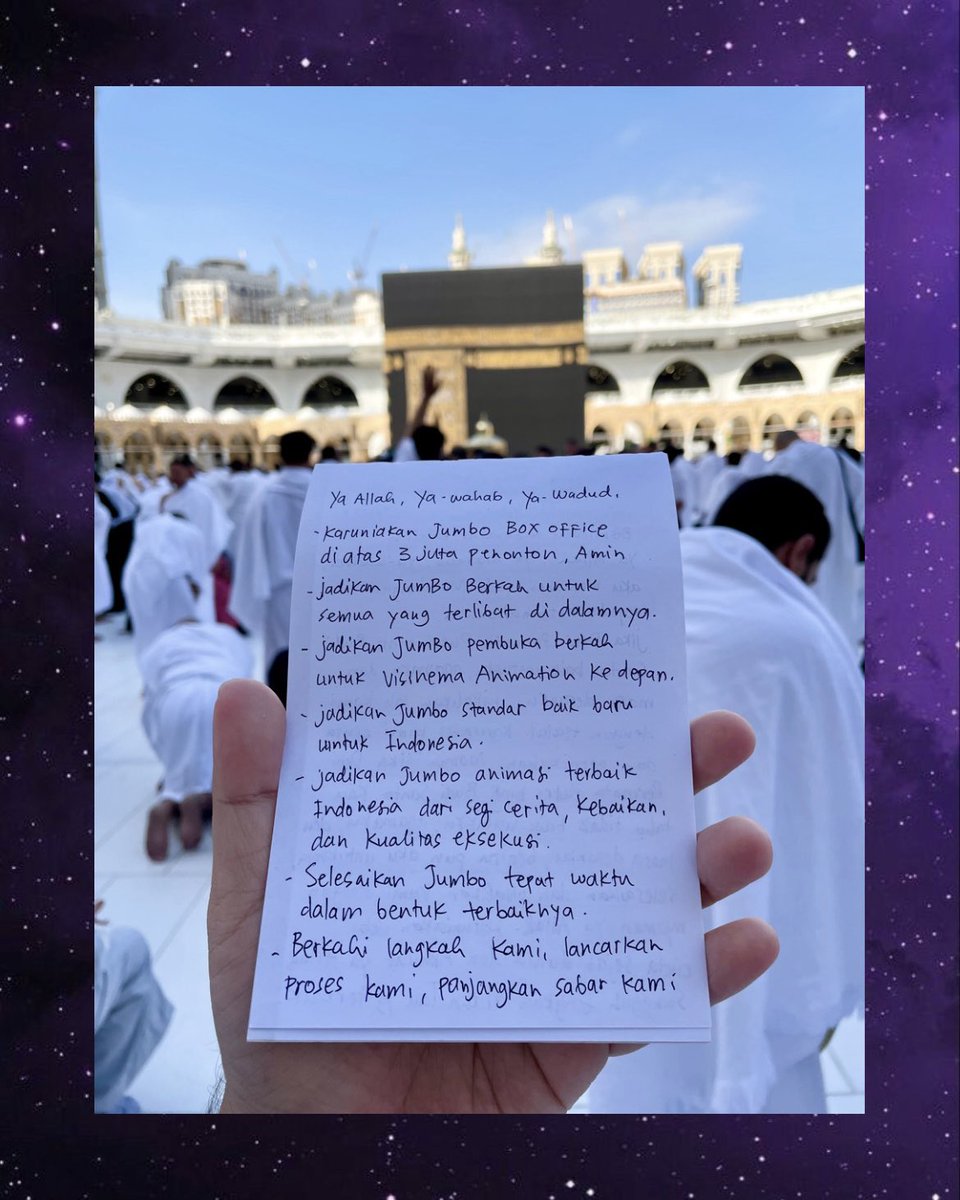 Ya Allah, Ya-wahab, Ya-Wadud.
- Karuniakan Jumbo Box office
di atas 3 juta penonton, Amin
- jadikan JumBo Berkah untuk
semua yang terlibat di dalamnya.
- jadikan JumBo pembuka berkah
untuk Visinema Animation Ke depan.
- jadikan Jumbo standar baik baru
untuk Indonesia.
- jadikan Jumbo animasi terbaik
Indonesia dari segi cerita, Kebaikan,
dan Kualitas eksekusi.
- Selesaikan Jumbo tepat waktu
dalam bentuk terbaiknya.
- Berkahi langkah Kami, lancarkan
proses kami, panjangkan sabar kami